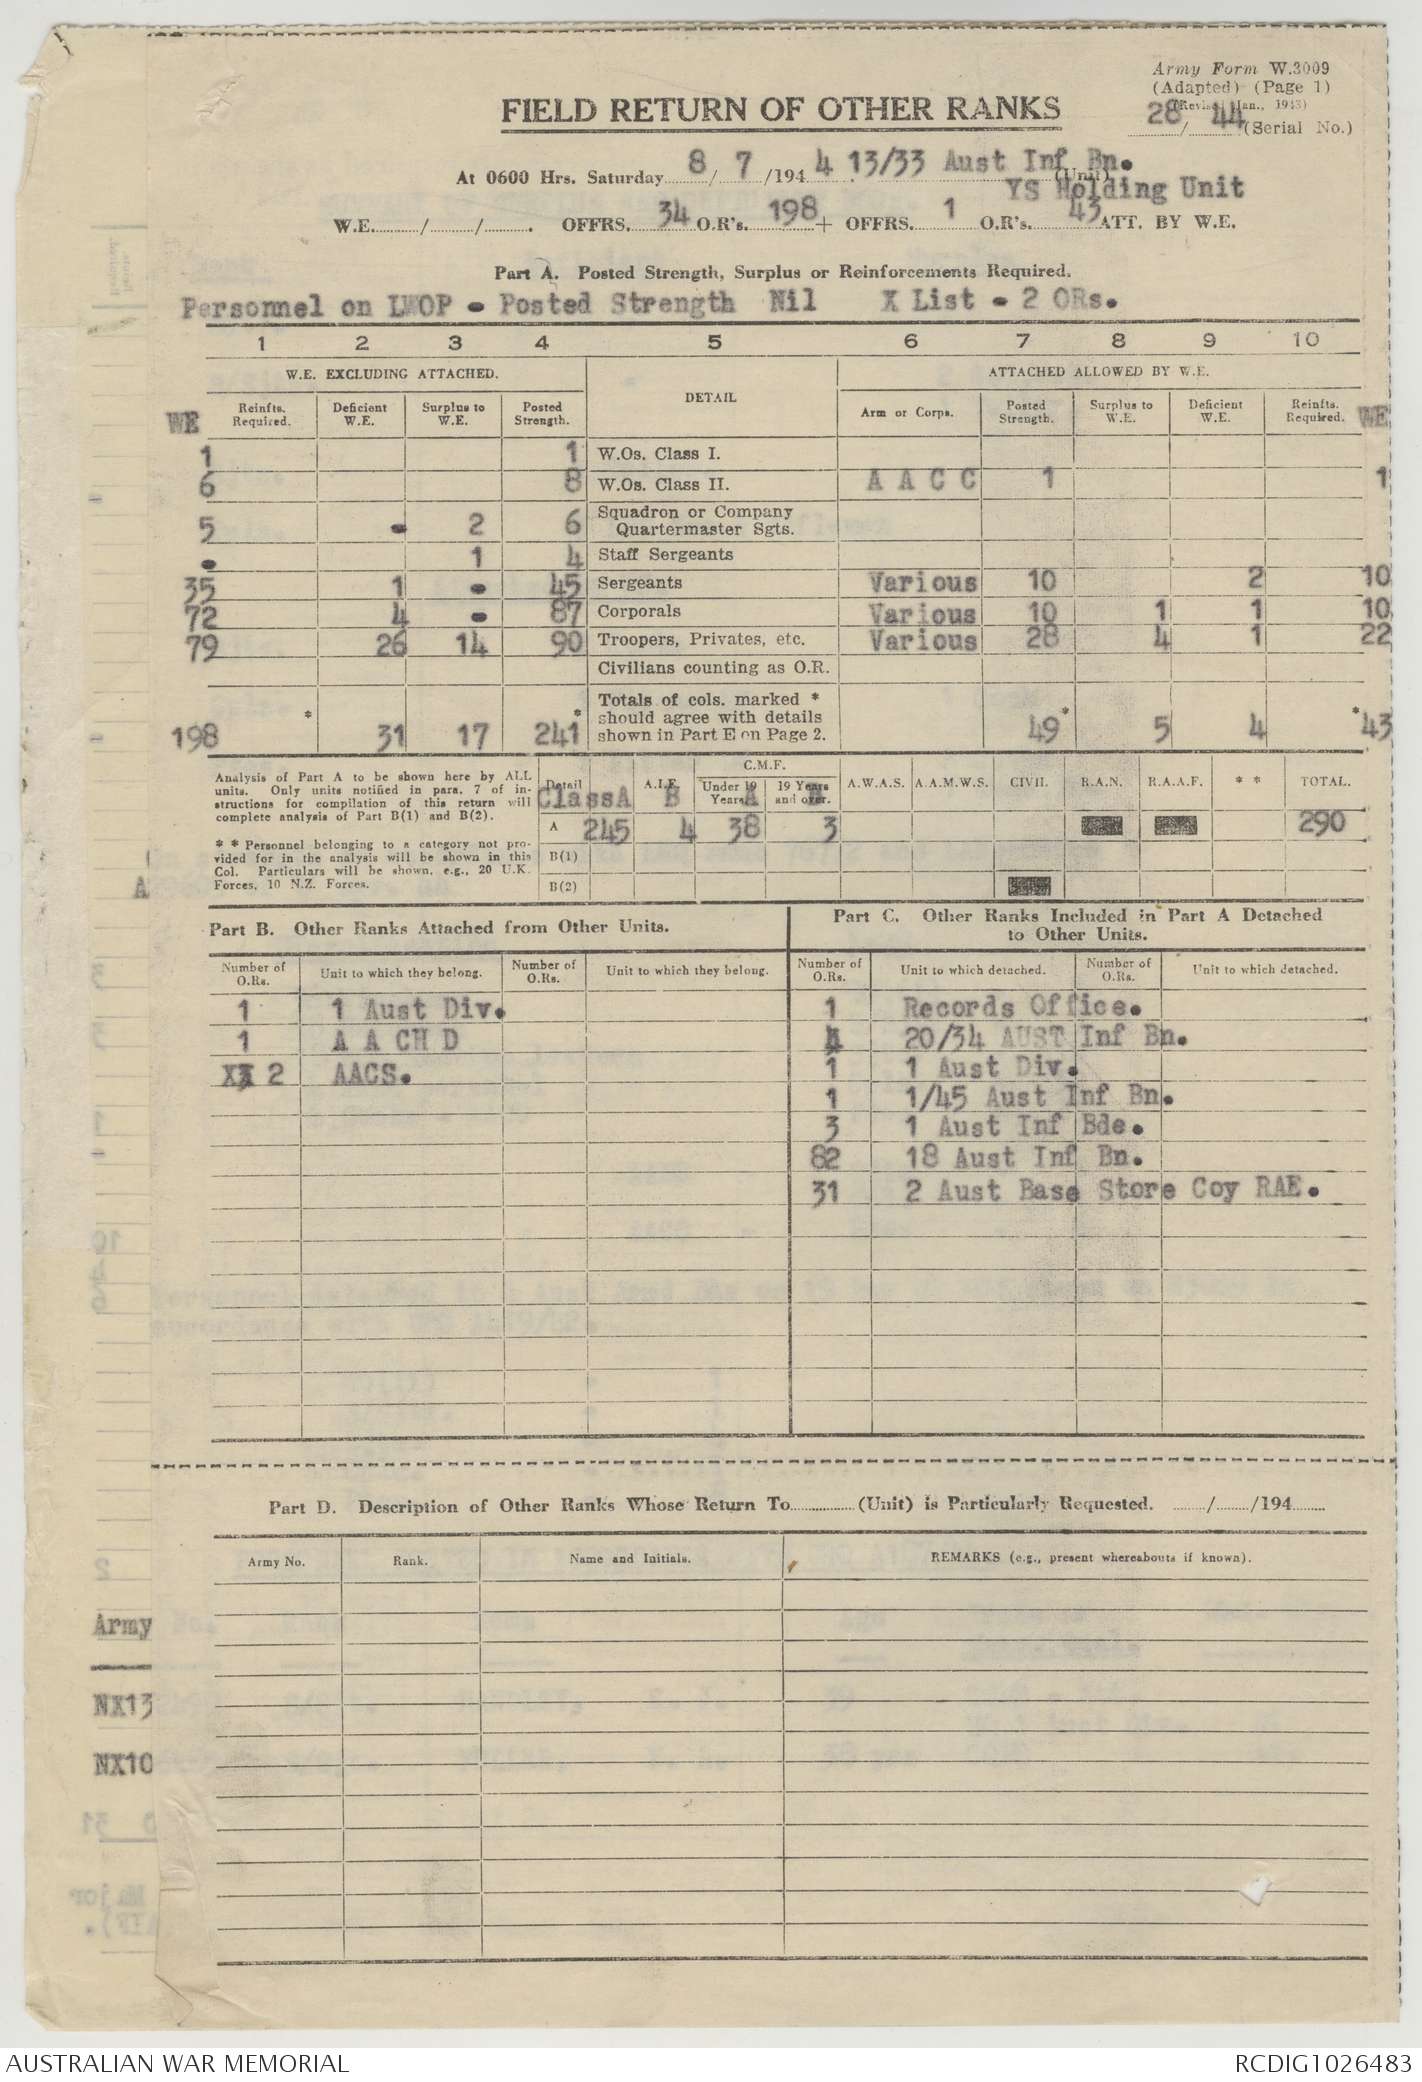 Army Form W.3009
(Adapted) (Page 1)
(Revised Jan., 1943)
FIELD RETURN OF OTHER RANKS
28/44 (Serial No.)
At 0600 Hrs. Saturday 8/7/1944. 13/33 Aust Inf Bn. (Unit)
YS Holding Unit
W.E. / / . OFFRS. 34 O.R's. 198 + OFFRS. 1 O.R's. 43 ATT. BY W.E.
Part A. Posted Strength, Surplus or Reinforcements Required.
Personnel on LWOP - Posted Strength Nil X List - 2 ORs.
1 2 3 4 5 6 7 8 9 10
W.E. EXCLUDING ATTACHED. DETAIL ATTACHED ALLOWED BY W.E.
WE Reinfts. Required. Deficient W.E. Surplus to W.E. Posted Strength. Arm or Corps. Posted Strength. Surplus to W.E. Deficient W.E. Reinfts. Required. WE
1 1 W.Os. Class I.
6 8 W.Os. Class II. A A C C 1 1
5 - 2 6 Squadron or Company Quartermaster Sgts.
- 1 4 Staff Sergeants
35 1 - 45 Sergeants Various 10 2 10
72 4 - 87 Corporals Various 10 1 1 10
79 26 14 90 Troopers, Privates, etc. Various 28 4 1 22
Civilians counting as O.R.
198 * 31 17 241 * Totals of cols. marked * should agree with details shown in Part E on Page 2. 49 * 5 4 * 43
Analysis of Part A to be shown here by ALL
units. Only units notified in para. 7 of in-
structions for compilation of this return will
complete analysis of Part B(1) and B(2).
* * Personnel belonging to a category not pro-
vided for in the analysis will be shown in this
Col. Particulars will be shown, e.g., 20 U.K.
Forces, 10 N.Z. Forces.
Detail A.I.F. C.M.F. Under 19 Years 19 Years and over. A.W.A.S. A.A.M.W.S. CIVIL R.A.N. R.A.A.F. * * TOTAL.
Class A B A B
A 245 4 38 3 290
B(1)
B(2)
A
Part B. Other Ranks Attached from Other Units.
Number of O.Rs. Unit to which they belong. Number of O.Rs. Unit to which they belong.
1 1 Aust Div.
1 A A CH D
2 AACS.
Part C. Other Ranks Included in Part A Detached
to Other Units.
Number of O.Rs. Unit to which detached. Number of O.Rs. Unit to which detached.
1 Records Office.
20/34 AUST Inf Bn.
1 1 Aust Div.
1 1/45 Aust Inf Bn.
3 1 Aust Inf Bde.
82 18 Aust Inf Bn.
31 2 Aust Base Store Coy RAE.
Part D. Description of Other Ranks Whose Return To (Unit) is Particularly Requested. / /194
Army No. Rank. Name and Initials. REMARKS (e.g., present whereabouts if known).
Army
NX13
NX10
AUSTRALIAN WAR MEMORIAL RCDIG1026483